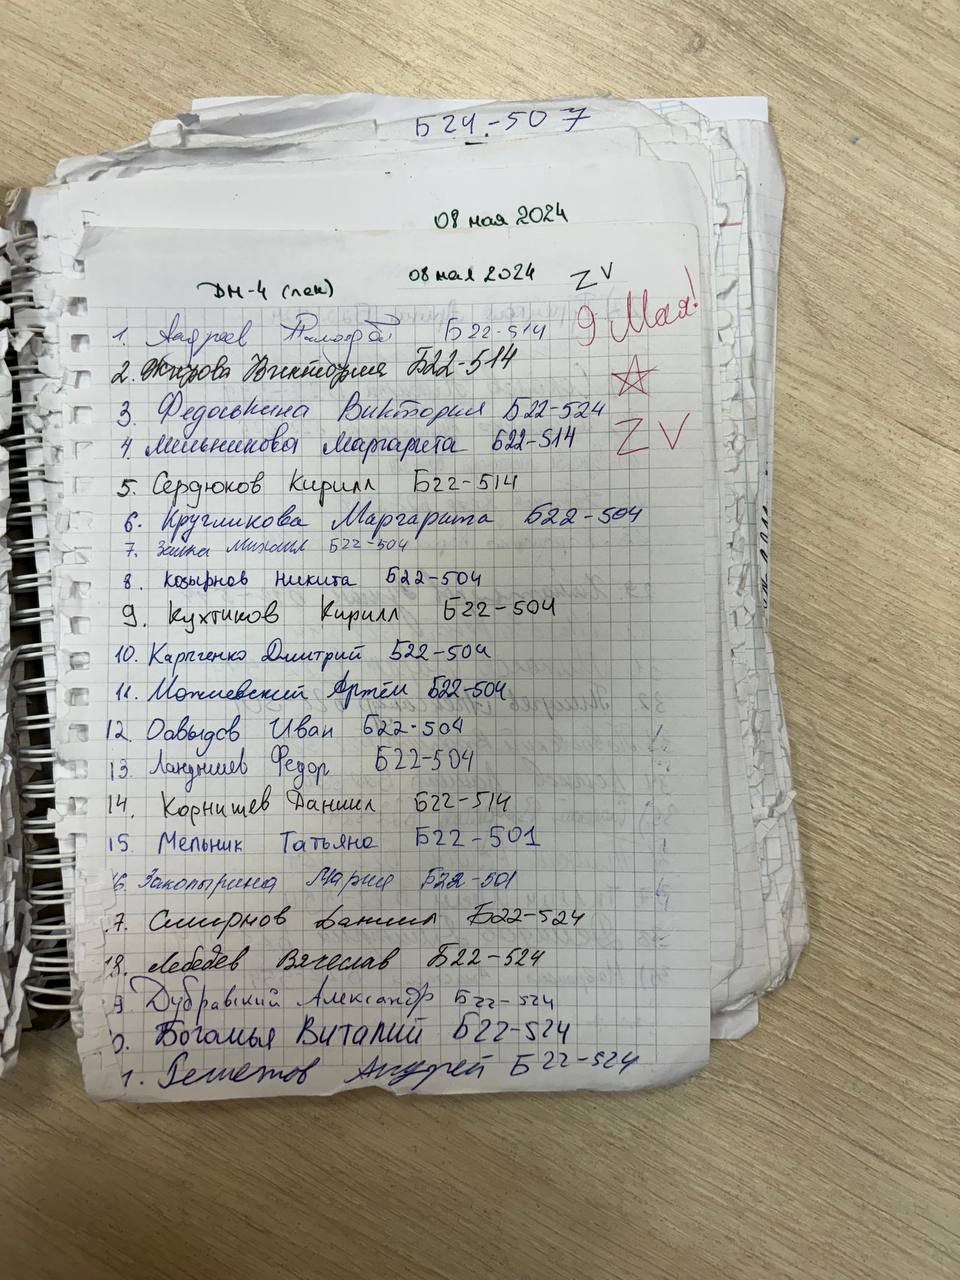 Б24-507
08 мая 2024
ДМ-4 (лек) 08 мая 2024 Z V
9 Мая!
1. Андреев Б22-514
2. Жирова Виктория Б22-514
3. Федоськина Виктория Б22-524
4. Мельникова Маргарита Б22-514
Z V
5. Сердюков Кирилл Б22-514
6. Кругликова Маргарита Б22-504
7. Заика Михаил Б22-504
8. Козырнов Никита Б22-504
9. Кухтиков Кирилл Б22-504
10. Карпенко Дмитрий Б22-504
11. Можиевский Артём Б22-504
12. Давыдов Иван Б22-504
13. Ландышев Федор Б22-504
14. Корнишев Даниил Б22-514
15. Мельник Татьяна Б22-501
16. Закопырина Мария Б22-501
17. Смирнов Даниил Б22-524
18. Лебедев Вячеслав Б22-524
9 Дубравский Александр Б22-524
0. Богомья Виталий Б22-524
1. Решетов Андрей Б22-524